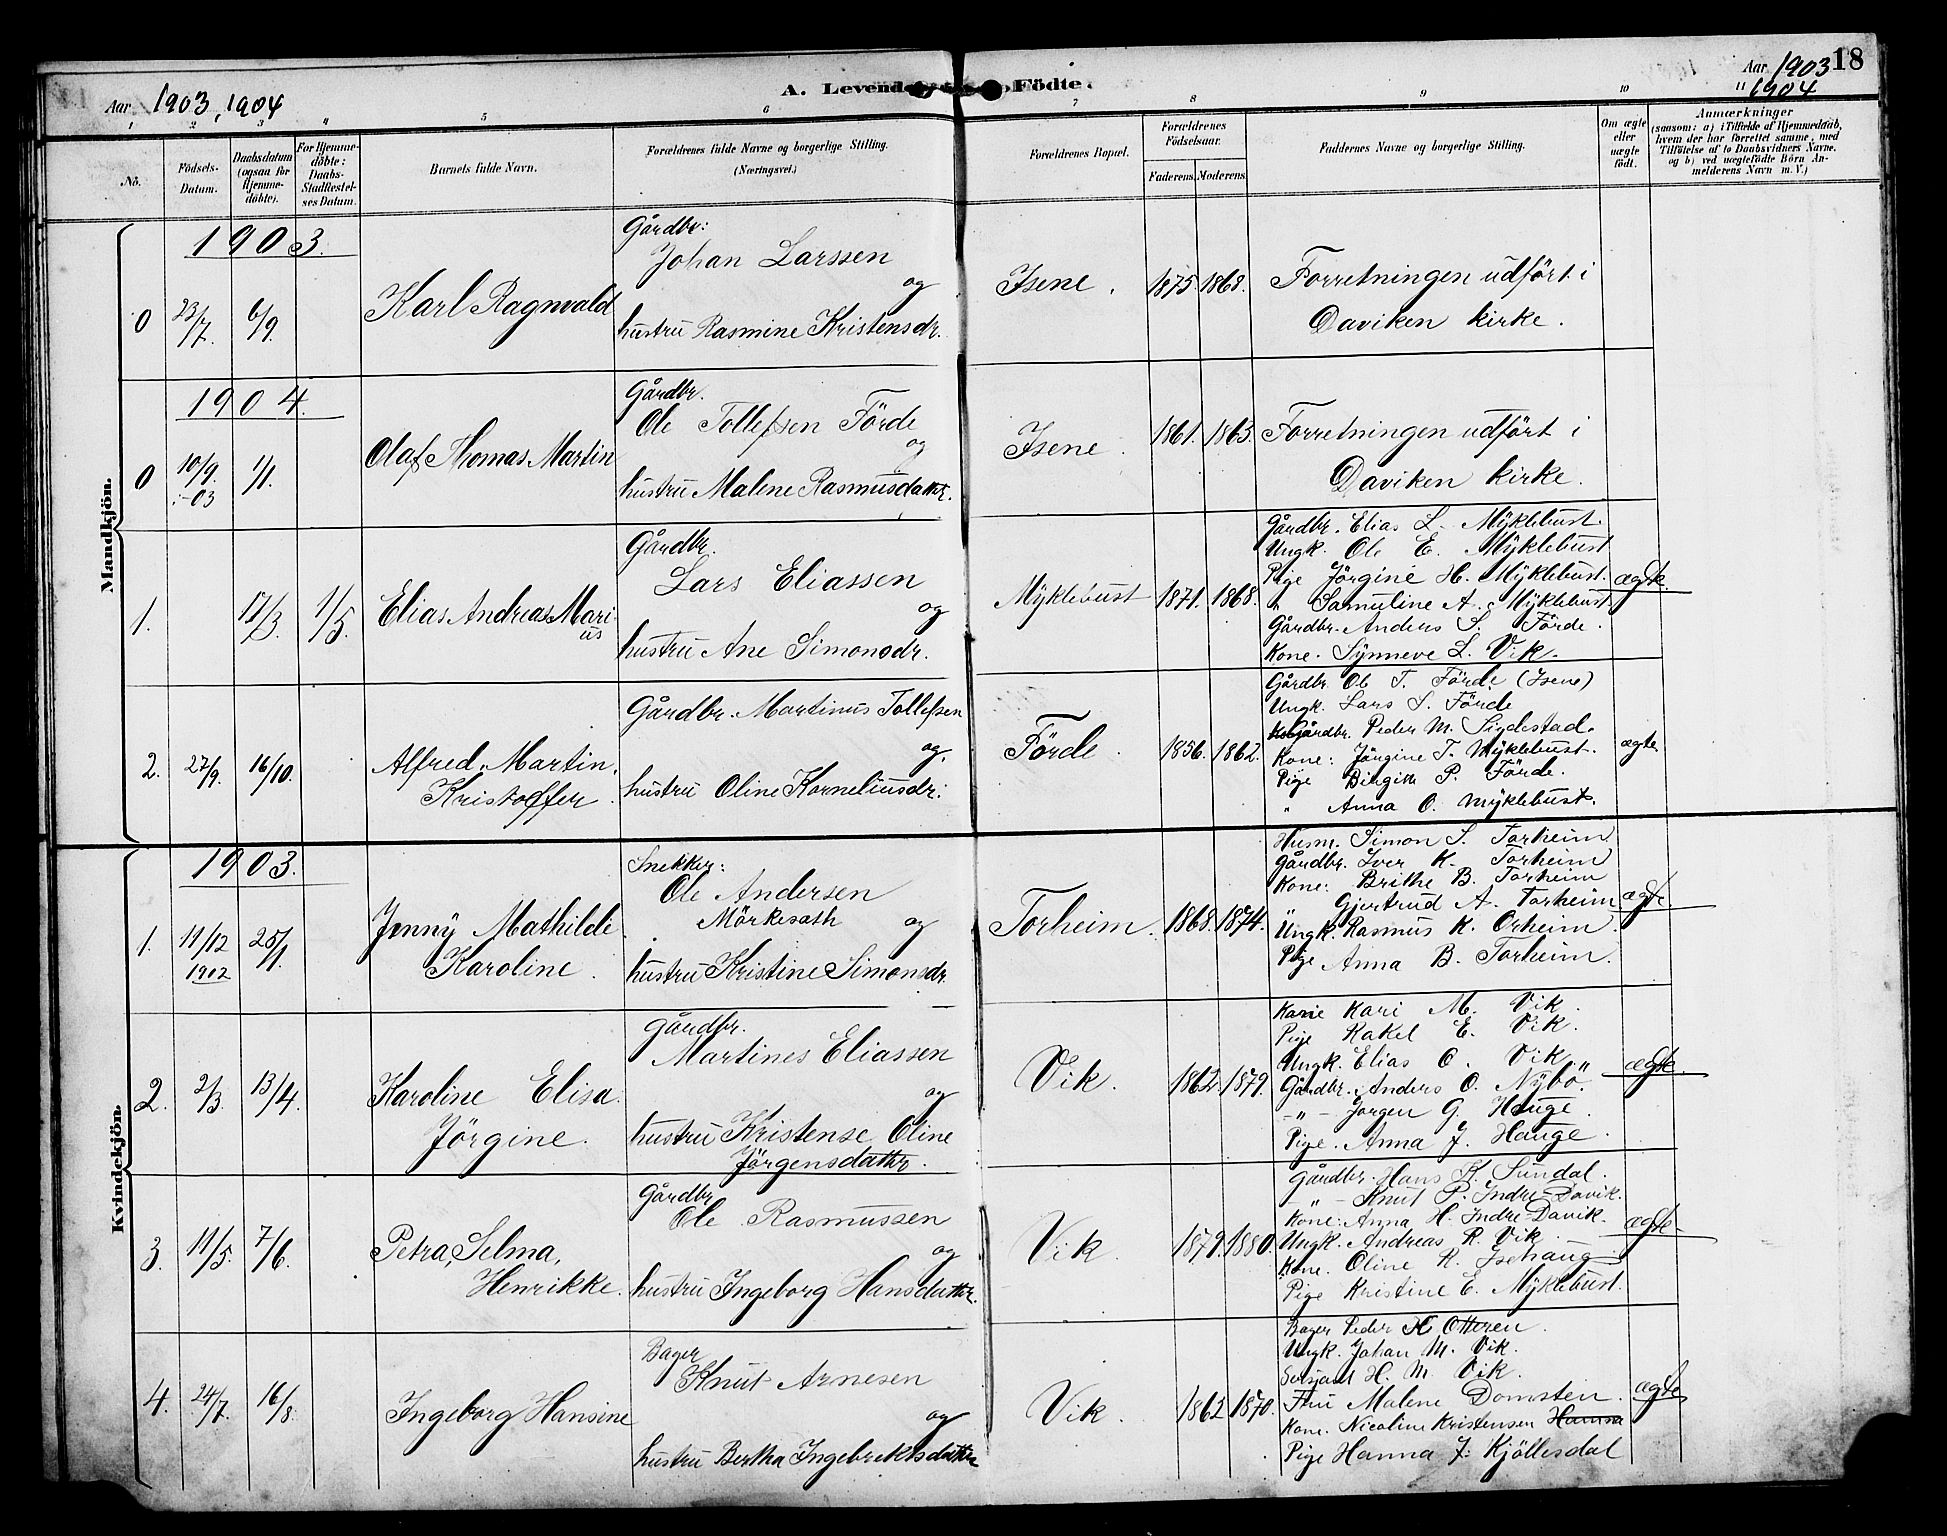 Aar 1903, 1904
A. Levende Födte.
Aar 1903 18
1904
1 2 3 4 5 6 7 8 9 10 11
No.
Födsels-Datum.
Daabsdatum (ogsaa for Hjemme-döbte).
For Hjemme-döbte: Daabs-Stadfæstel-ses Datum.
Barnets fulde Navn.
Forældrenes fulde Navne og borgerlige Stilling.
(Næringsvei.)
Forældrenes Bopæl.
Forældrenes Födselsaar.
Faderens. Moderens.
Faddernes Navne og borgerlige Stilling.
Om ægte eller uægte födt.
Anmærkninger
(saasom: a) i Tilfælde af Hjemmedaab, hvem der har forrettet samme, med Tilföielse af to Daabsvidners Navne, og b) ved uægtefödte Börn An-melderens Navn m. V.)
Mandkjön.
1903.
0 23/7. 6/9.
Karl Ragnvald
Gårdbr:
Johan Larssen
og
hustru Rasmine Kristensdr.
Isene. 1875. 1868.
Forretningen udfört i
Daviken kirke.
1904.
0 10/9. -03 1/1.
Olaf Thomas Martin
Gårdbr.
Ole Tollefsen Förde
og
hustru Malene Rasmusdatter.
Isene. 1861. 1863.
Forretningen udfört i
Daviken kirke.
1. 17/3. 1/5.
Elias Andreas Mari-
us
Gårdbr.
Lars Eliassen
og
hustru Ane Simonsdr.
Myklebust 1871. 1868.
Gårdbr. Elias L. Myklebust.
Ungk. Ole E. Myklebust
Pige Jörgine H. Myklebust.
" Samuline A. Myklebust.
Gårdbr. Anders S. Förde.
Kone. Synneve L. Vik.
ægte.
2. 27/9. 16/10.
Alfred Martin
Kristoffer.
Gårdbr. Martinus Tollefsen
og
hustru Oline Korneliusdr.
Förde. 1856. 1862.
Gårdbr. Ole T. Förde (Isene)
Ungk. Lars S. Förde
Gårdbr. Peder M. Sigdestad.
Kone: Jörgine T. Myklebust.
Pige Birgit P. Förde.
" Anna O. Myklebust.
ægte
Kvindekjön.
1903.
1. 11/12 1902 25/1.
Jenny Mathilde
Karoline.
Snekker:
Ole Andersen
Mörkesath og
hustru Kristine Simonsdr.
Torheim. 1868. 1874.
Husm. Simon S. Torheim
Gårdbr. Iver K. Torheim
Kone: Brithe B. Torheim
" Gjertrud A. Torheim
Ungk. Rasmus K. Orheim.
Pige Anna B. Torheim.
ægte.
2. 2/3. 13/4.
Karoline Elisa.
Jörgine.
Gårdbr.
Martines Eliassen
og
hustru Kristense Oline
Jörgensdatter.
Vik. 1862. 1879.
Kone Kari M. Vik.
Pige Rakel E. Vik.
Ungk. Elias O. Vik
Gårdbr. Anders O. Nybö.
-"- Jörgen G. Hauge.
Pige. Anna J. Hauge.
ægte.
3. 11/5. 7/6.
Petra, Selma,
Henrikke.
Gårdbr
Ole Rasmussen
og
hustru Ingeborg Hansdatter.
Vik. 1879. 1880.
Gårdbr. Hans K. Sundal.
-"- Knut P. Indre-Davik.
Kone: Anna H. Indre-Davik.
Ungk. Andreas R. Vik.
Kone. Oline R. Isehaug
Pige Kristine E. Myklebust.
ægte
4. 24/7. 16/8.
Ingeborg Hansine
Bager
Knut Arnesen
og
hustru Bertha Ingebrektsdatter
Vik. 1862 1870.
Bager Peder K Otteren.
Ungk. Johan M. Vik.
H. M. Vik.
Fru Malene Domsten.
Kone. Nicoline Kristensen Hamna
Pige Hanna J. Kjöllesdal
ægte